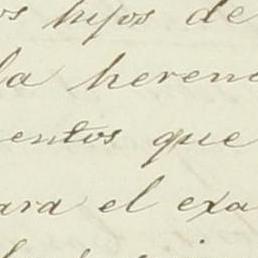 os hijos de
la heren
entos que
ara el exa